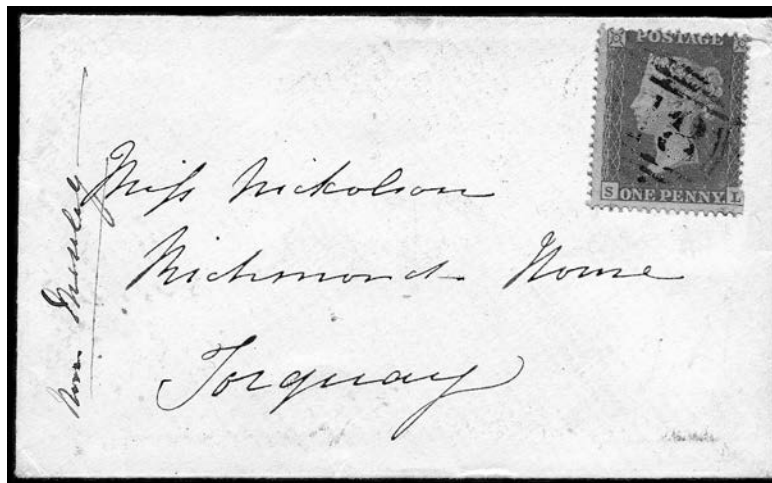 POSTAGE
S ONE PENNY. L
Miss Nickolson
Richmond House
Torquay